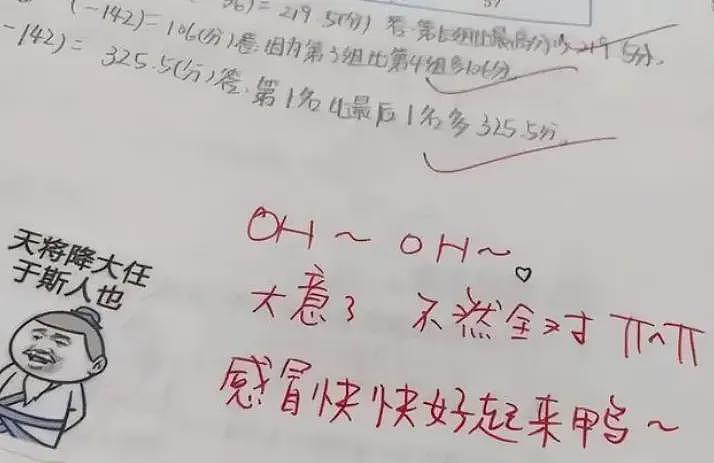 (-142)=106(分) 答:因为第3组比第4组多106分。
-142)= 325.5(分) 答:第1名比最后1名多325.5分。
天将降大任
于斯人也
OH～OH～。♡
大意了 不然全对 TT^TT
感冒快快好起来鸭～